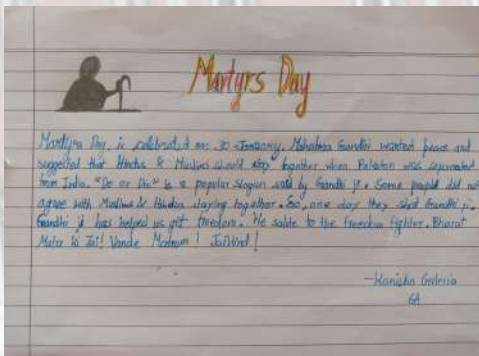 Martyrs Day
Martyrs Day is celebrated on 30 January. Mahatma Gandhi wanted peace and
suggested that Hindus & Muslims should stay together when Pakistan was separated
from India. "Do or Die" is a popular slogan said by Gandhi ji. Some people did not
agree with Muslims & Hindus staying together. So, one day they shot Gandhi ji.
Gandhi ji has helped us get freedom. We salute to the freedom fighter. Bharat
Mata ki Jai! Vande Matram! JaiHind!
-Kanishka
6A